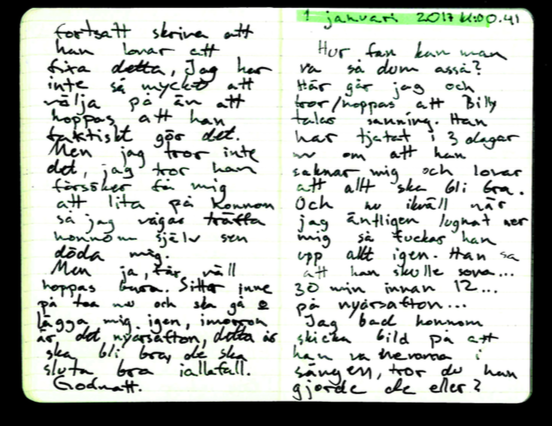 fortsatt skriva att
han lovar att
fixa detta, Jag har
inte så mycket att
välja på än att
hoppas att han
faktiskt gör det.
Men jag tror inte
det, jag tror han
försöker få mig
att lita på honnon
så jag vågar träffa
honnom själv sen
döda mig.
Men ja, får väll
hoppas bara. Sitter inne
på toa nu och ska gå o
lägga mig igen, imorron
är det nyårsafton, detta år
ska bli bra, de ska
sluta bra iallafall.
Godnatt.
1 januari 2017 kl:00.41
Hur fan kan man
va så dum asså?
Här går jag och
tror/hoppas att Billy
talar sanning. Han
har tjatat i 3 dagar
nu om att han
saknar mig och lovar
att allt ska bli bra.
Och nu ikväll när
jag äntligen lugnat ner
mig så fuckar han
upp allt igen. Han sa
att han skulle sova...
30 min innan 12...
på nyårsafton...
Jag bad honnom
skicka bild på att
han va hemma i
sängen, tror du han
gjorde de eller?